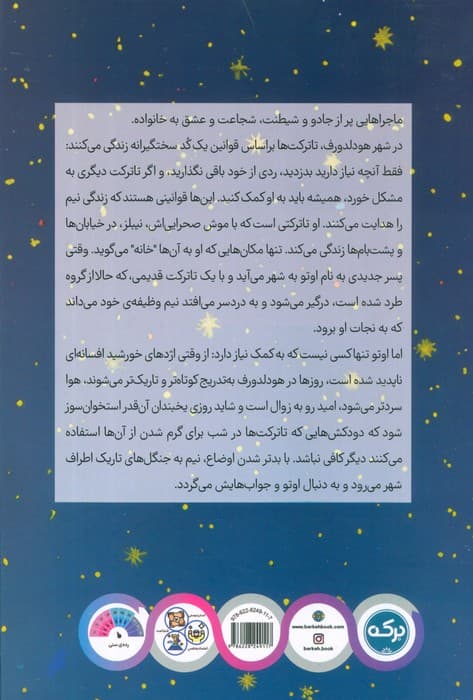 ماجراهایی پر از جادو و شیطنت، شجاعت و عشق به خانواده.
در شهر هودلدورف، تاترکت‌ها براساس قوانین یک کُد سختگیرانه زندگی می‌کنند:
فقط آنچه نیاز دارید بدزدید، ردی از خود باقی نگذارید، و اگر تاترکت دیگری به
مشکل خورد، همیشه باید به او کمک کنید. این‌ها قوانینی هستند که زندگی نیم
را هدایت می‌کنند. او تاترکتی است که با موش صحرایی‌اش، نیبلز، در خیابان‌ها
و پشت‌بام‌ها زندگی می‌کند. تنها مکان‌هایی که او به آن‌ها "خانه" می‌گوید. وقتی
پسر جدیدی به نام اوتو به شهر می‌آید و با یک تاترکت قدیمی، که حالا از گروه
طرد شده است، درگیر می‌شود و به دردسر می‌افتد نیم وظیفه‌ی خود می‌داند
که به نجات او برود.
اما اوتو تنها کسی نیست که به کمک نیاز دارد: از وقتی اژدهای خورشید افسانه‌ای
ناپدید شده است، روزها در هودلدورف به‌تدریج کوتاه‌تر و تاریک‌تر می‌شوند، هوا
سردتر می‌شود، امید رو به زوال است و شاید روزی یخبندان آن‌قدر استخوان‌سوز
شود که دودکش‌هایی که تاترکت‌ها در شب برای گرم شدن از آن‌ها استفاده
می‌کنند دیگر کافی نباشد. با بدتر شدن اوضاع، نیم به جنگل‌های تاریک اطراف
شهر می‌رود و به دنبال اوتو و جواب‌هایش می‌گردد.
برکه
www.berkehbook.com
berkeh.book
978-622-8249-11-7
9786228249117
رده‌ی سنی